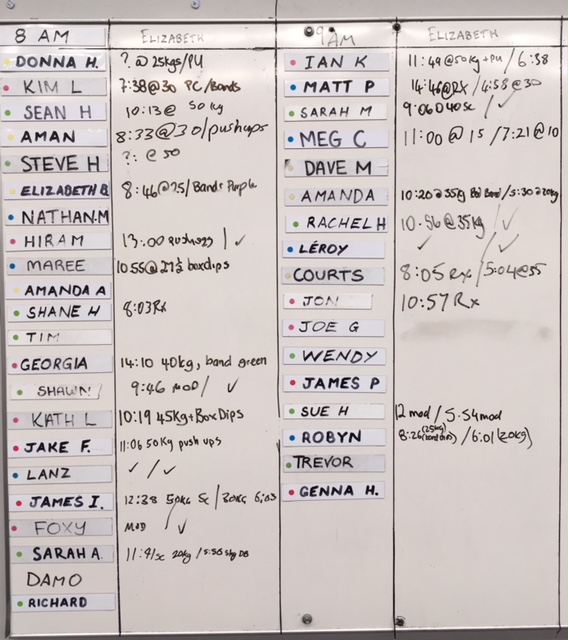 8 AM ELIZABETH
DONNA H. ? @ 25kgs/PU
KIM L 7:38@30 PC/Bands
SEAN H 10:13@ 50kg
AMAN 8:33@30/pushups
STEVE H ?: @ 50
ELIZABETH B 8:46@25/Bands Purple
NATHAN.M
HIRAM 13:00 pushups / ✓
MAREE 10:55@27½ boxdips
AMANDA A
SHANE H 8:03Rx
TIM
GEORGIA 14:10 40kg, band green
SHAWN 9:46 MOD/ ✓
KATH L 10:19 45kg+Box Dips
JAKE F. 11:06 50Kg push ups
LANZ ✓/✓
JAMES I. 12:38 50KG Sc/30KG 6:03
FOXY MOD / ✓
SARAH A 11:41sc 20kg /
DAMO
RICHARD
9AM ELIZABETH
IAN K 11:49@50kg+PU/6:38
MATT P 14:46@RX/4:58@30
SARAH M 9:06 D 40sc / ✓
MEG C 11:00 @ 15 /7:21@10
DAVE M
AMANDA 10:20@35kg Band/5:30@20kg
RACHEL H 10:56@35kg / ✓
LÉROY ✓ / ✓
COURTS 8:05Rx/5:04@55
JON 10:57Rx
JOE G
WENDY
JAMES P
SUE H 12 mod / 5:54mod
ROBYN 8:26 (25kg) /6:01(20kg)
TREVOR
GENNA H.